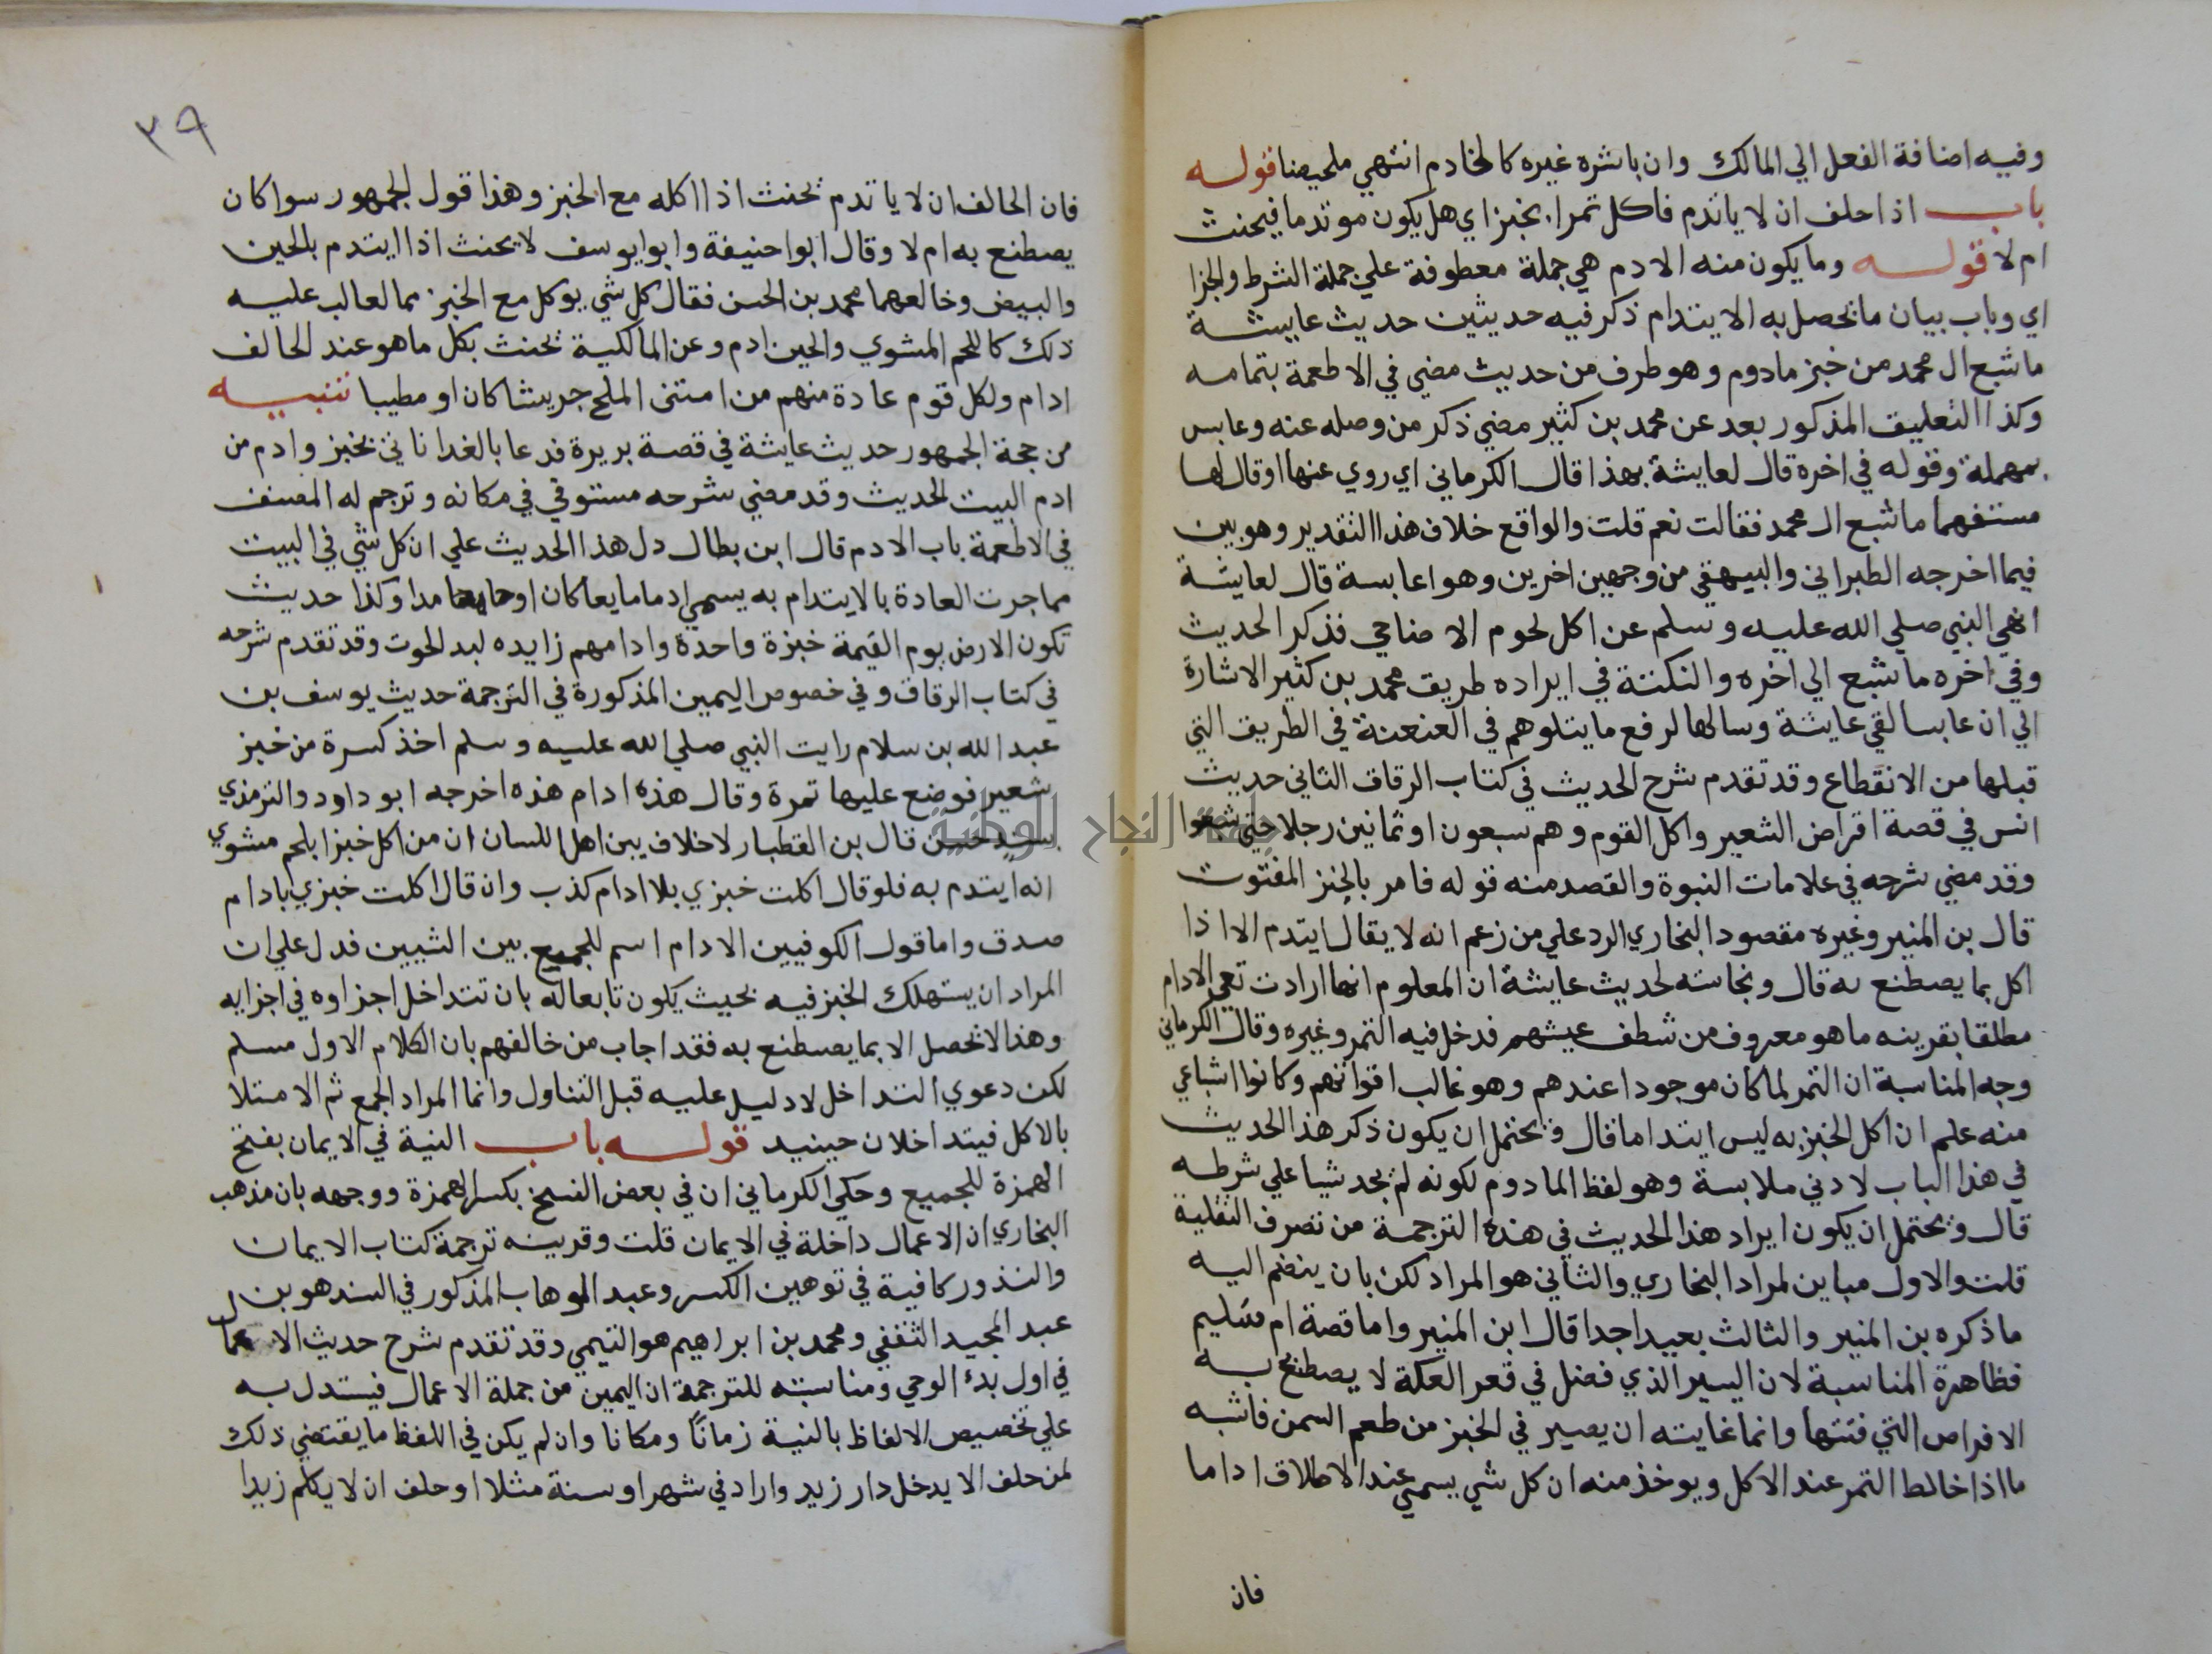 وفيه اضافة الفعل الي المالك وان باشره غيره كالخادم انتهي ملخيصا قوله
باب اذا حلف ان لا ياتدم فاكل تمرا بخبز اي هل يكون موتدما فيحنث
ام لا قوله وما يكون منه الادم هي جملة معطوفة علي جملة الشرط والجزا
اي وباب بيان ما تحصل به الايتدام ذكر فيه حديثين حديث عايشة
ما شبع ال محمد من خبز مادوم وهو طرف من حديث مضي في الاطعمة بتمامه
وكذا التعليق المذكور بعد عن محمد بن كثير مضي ذكر من وصله عنه وعابس
بمهملة وقوله في اخره قال لعايشة بهذا قال الكرماني اي روي عنها او قال لها
مستفهما ما شبع ال محمد فقالت نعم قلت والواقع خلاف هذا التقدير وهو بين
فيما اخرجه الطبراني والبيهقي من وجهين اخرين وهو ا عابسة قال لعايشة
انهي النبي صلي الله عليه وسلم عن اكل لحوم الاضاحي فذكر الحديث
وفي اخره ما شبع الي اخره والنكتة في ايراده طريق محمد بن كثير الاشارة
الي ان عابسا لقي عايشة وسالها لرفع ما يتلوهم في العنعنة في الطريق التي
قبلها من الانقطاع وقد تقدم شرح الحديث في كتاب الرقاق الثاني حديث
انس في قصة اقراص الشعير واكل القوم وهم سبعون او ثمانين رجلا حتي شبعوا
وقد مضي شرحه في علامات النبوة والقصد منه قوله فامر بالخبز المفتوت
قال بن المنير وغيره مقصود البخاري الرد علي من زعم انه لا يقال ايتدم الا اذا
اكل بما يصطنع به قال ونجاسته لحديث عايشة ان المعلوم انها ارادت تعي الادام
مطلقا بقرينه ما هو معروف من شطف عيشهم فدخل فيه التمر وغيره وقال الكرماني
وجه المناسبة ان التمر لما كان موجودا عندهم وهو غالب اقواتهم وكانوا اشباعي
منه علم ان اكل الخبز به ليس ايتداما قال ويحتمل ان يكون ذكر هذا الحديث
في هذا الباب لادني ملابسة وهو لفظ المادوم لكونه لم يجد شيا علي شرطه
قال ويحتمل ان يكون ايراد هذا الحديث في هذه الترجمة من تصرف النقلية
قلت والاول مباين لمراد البخاري والثاني هو المراد لكن بان ينضم اليه
ما ذكره بن المنير والثالث بعيد اجدا قال ابن المنير واما قصة ام سليم
فظاهرة المناسبة لان اليسير الذي فضل في قعر العكة لا يصطنع به
الاقراص التي فتتها وانما غايته ان يصير في الخبز من طعم السمن فاشبه
ما اذا خالط التمر عند الاكل ويوخذ منه ان كل شي يسمي عند الاطلاق اداما
فان
٣٩
فان الحالف ان لا ياتدم تحنث اذا اكله مع الخبز وهذا قول الجمهور سوا كان
يصطنع به ام لا وقال ابوا حنيفة وابو ايوسف لا يحنث اذا ايتدم بالحبن
والبيض وخالعهما محمد بن الحسن فقال كل شي يوكل مع الخبز مما لعالب عليه
ذلك كاللحم المشوي والحبن ادم وعن المالكية تحنث بكل ما هو عند الحالف
ادام ولكل قوم عادة منهم من استثني الملح جريشا كان او مطيبا تنبيه
من حجة الجمهور حديث عايشة في قصة بريرة فدعا بالغدا ناتي بخبز وادم من
ادم البيت الحديث وقد مضي شرحه مستوفي في مكانه وترجم له المصنف
في الاطعمة باب الادم قال ابن بطال دل هذا الحديث علي ان كل شي في البيت
مما جرت العادة بالايتدام به يسمي ادما مايعا كان او جامدا وكذا حديث
تكون الارض يوم القيمة خبزة واحدة وادامهم زايده لبد الحوت وقد تقدم شرحه
في كتاب الرقاق وفي خصوص اليمين المذكورة في الترجمة حديث يوسف بن
عبد الله بن سلام رايت النبي صلي الله عليه وسلم اخذ كسرة من خبز
شعير فوضع عليها تمرة وقال هذه ادام هذه اخرجه ابو داود والترمذي
بسيد حسن قال بن القطبار لا خلاف بين اهل اللسان ان من اكل خبزا بلحم مشوي
انه ايتدم به فلو قال اكلت خبزي بلا ادام كذب وان قال اكلت خبزي بادام
صدق واما قول الكوفيين الادام اسم للجميع بين الشيين فدل علي ان
المراد ان يستهلك الخبز فيه بحيث يكون تابعا له بان تتداخل اجزاوه في اجزايه
وهذا لا تحصل الا بما يصطنع به فقد اجاب من خالفهم بان الكلام الاول مسلم
لكن دعوي التداخل لا دليل عليه قبل التناول وانما المراد الجمع ثم الاستلا
بالاكل فيتداخلان حينيد قوله باب النية في الايمان بفتح
الهمزة للجميع وحكي الكرماني ان في بعض النسخ بكسر الهمزة ووجهه بان مذهب
البخاري ان الاعمال داخلة في الايمان قلت وقرينه ترجمة كتاب الايمان
والنذور كافية في توهين الكسر وعبد الوهاب المذكور في السند هو بن
عبد المجيد الثقفي ومحمد بن ابراهيم هو التيمي وقد تقدم شرح حديث الاعمال
في اول بدء الوحي ومناسبته للترجمة ان اليمين من جملة الاعمال فيستدل به
علي تخصيص الالفاظ بالنية زمانا ومكانا وان لم يكن في اللفظ ما يقتضي ذلك
لمن حلف الا يدخل دار زيد واراد في شهر او سنة مثلا او حلف ان لا يكلم زيدا
جامعة النجاح الوطنية